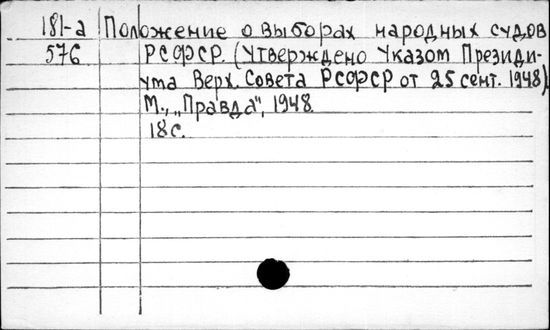 181-а Положение о выборах народных судов
576 РСФСР. (Утверждено Указом Президи-
ума Верх. Совета РСФСР от 25 сент. 1948)
М., „Правда", 1948.
18 с.